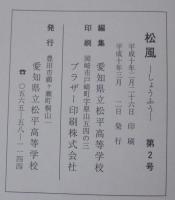 松風 ―しょうふう― 第2号
平成十年二月二十六日 印刷
平成十年三月 二日 発行
編集 愛知県立松平高等学校
印刷 岡崎市戸崎町字原山五四の三
ブラザー印刷株式会社
発行 愛知県立松平高等学校
豊田市鵜ヶ瀬町桐山一
☎ 〇五六五-五八-一一四四